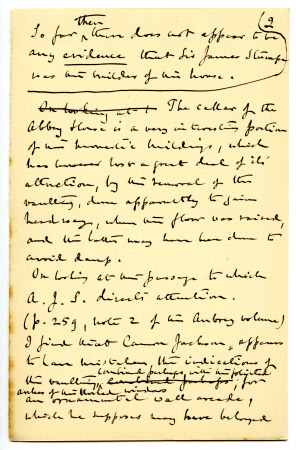 (9
So far then there does not appear to be
any evidence that Sir James Stumpe
was the builder of this house.
On looking at t The cellar of the
Abbey House is a very interesting portion
of the monastic buildings, which
has however lost a great deal of its
attraction, by the removal of the
vaulting, done apparently to gain
headway, when the floor was raised,
and the latter may have been done to
avoid damp.
On looking at the passage to which
A. J. S. directs attention.
(p. 259, note 2 of the Aubrey volume)
I find that Canon Jackson, appears
to have mistaken, the indications of
the vaulting, combined perhaps, with the pointed
combined perhaps, for
arches of the blocked windows
an ornamental wall arcade,
which he supposes may have belonged